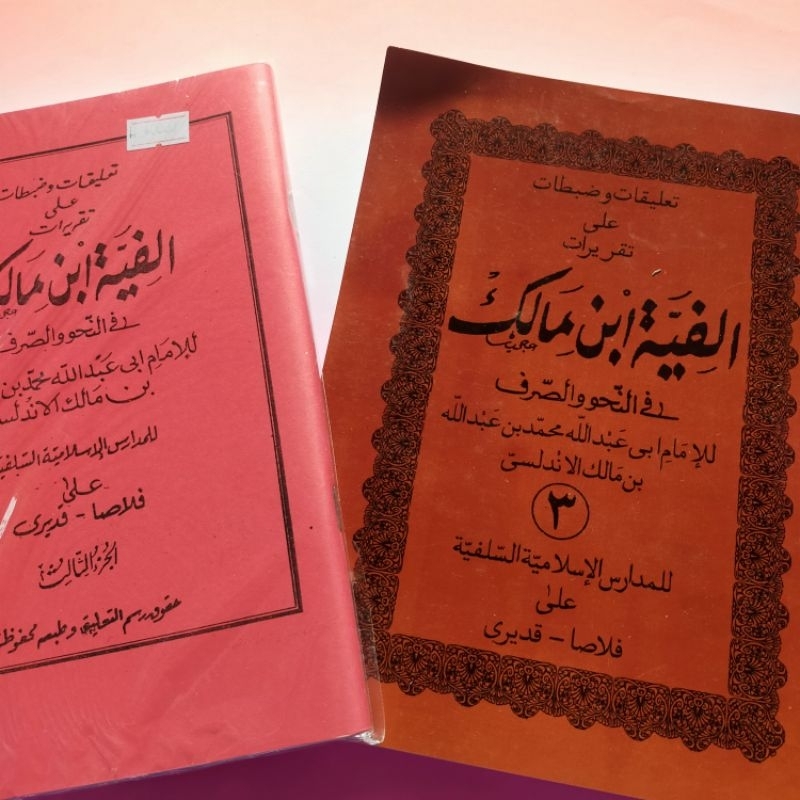 تعليقات وضبطات
على
تقريرات
الفِيَّة ابْن مَالك
في النّحو والصّرف
للإمَامِ ابى عَبْد الله محمّد بن
بن مَالك الاندلسى
للمدارس الإسلاميّة السّلفيّة
على
فلاصا - قديرى
الجزء الثالث
حقوق رسم التعليق وطبعه محفوظة
تعليقات وضبطات
على
تقريرات
الفِيَّة ابْن مَالكْ
في النّحو والصّرف
للإمَامِ ابى عَبْد الله محمّد بن عَبْد الله
بن مَالك الاندلسىّ
٣
للمدارس الإسلاميّة السّلفيّة
على
فلاصا - قديرى